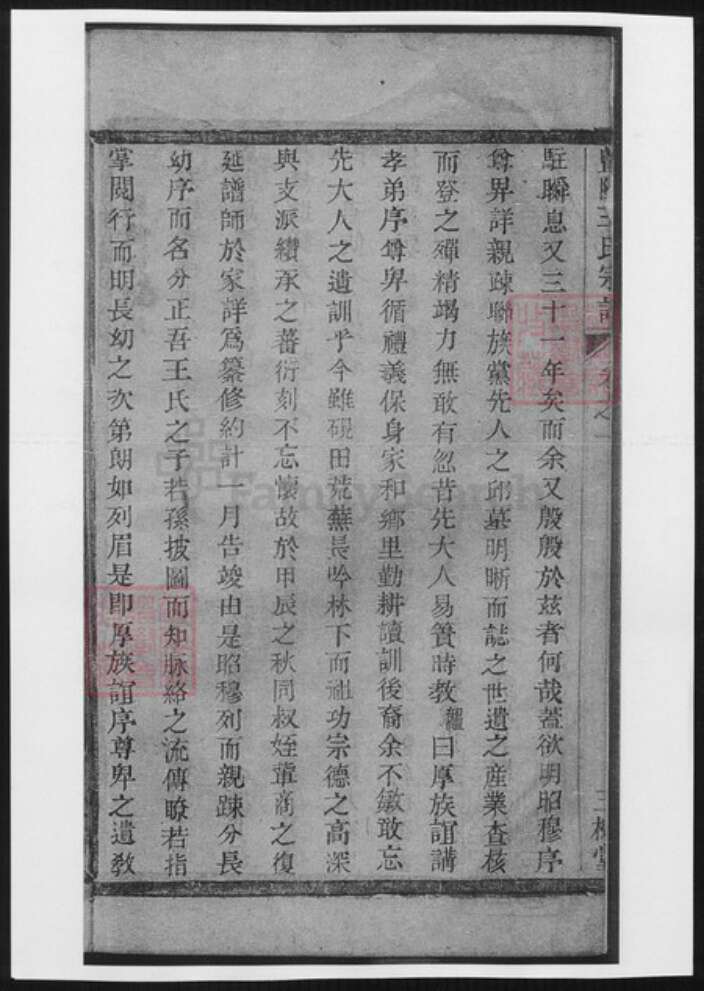 陽王氏宗譜 卷之一 三槐堂
駐瞬息又三十一年矣而余又殷殷於茲者何哉蓋欲明昭穆序
尊卑詳親疎聯族黨先人之邱墓明晰而誌之世遺之產業查核
而登之殫精竭力無敢有忽昔先大人易簀時教 曰厚族誼講
孝弟序尊卑循禮義保身家和鄉里勤耕讀訓後裔余不敏敢忘
先大人之遺訓乎今雖硯田荒蕪長吟林下而祖功宗德之高深
與支派纘承之蕃衍刻不忘懷故於甲辰之秋同叔姪輩商之復
延譜師於家詳爲纂修約計一月告竣由是昭穆列而親踈分長
幼序而名分正吾王氏之子若孫披圖而知脉絡之流傳瞭若指
掌閱行而明長幼之次第朗如列眉是即厚族誼序尊卑之遺敎
FamilySearch